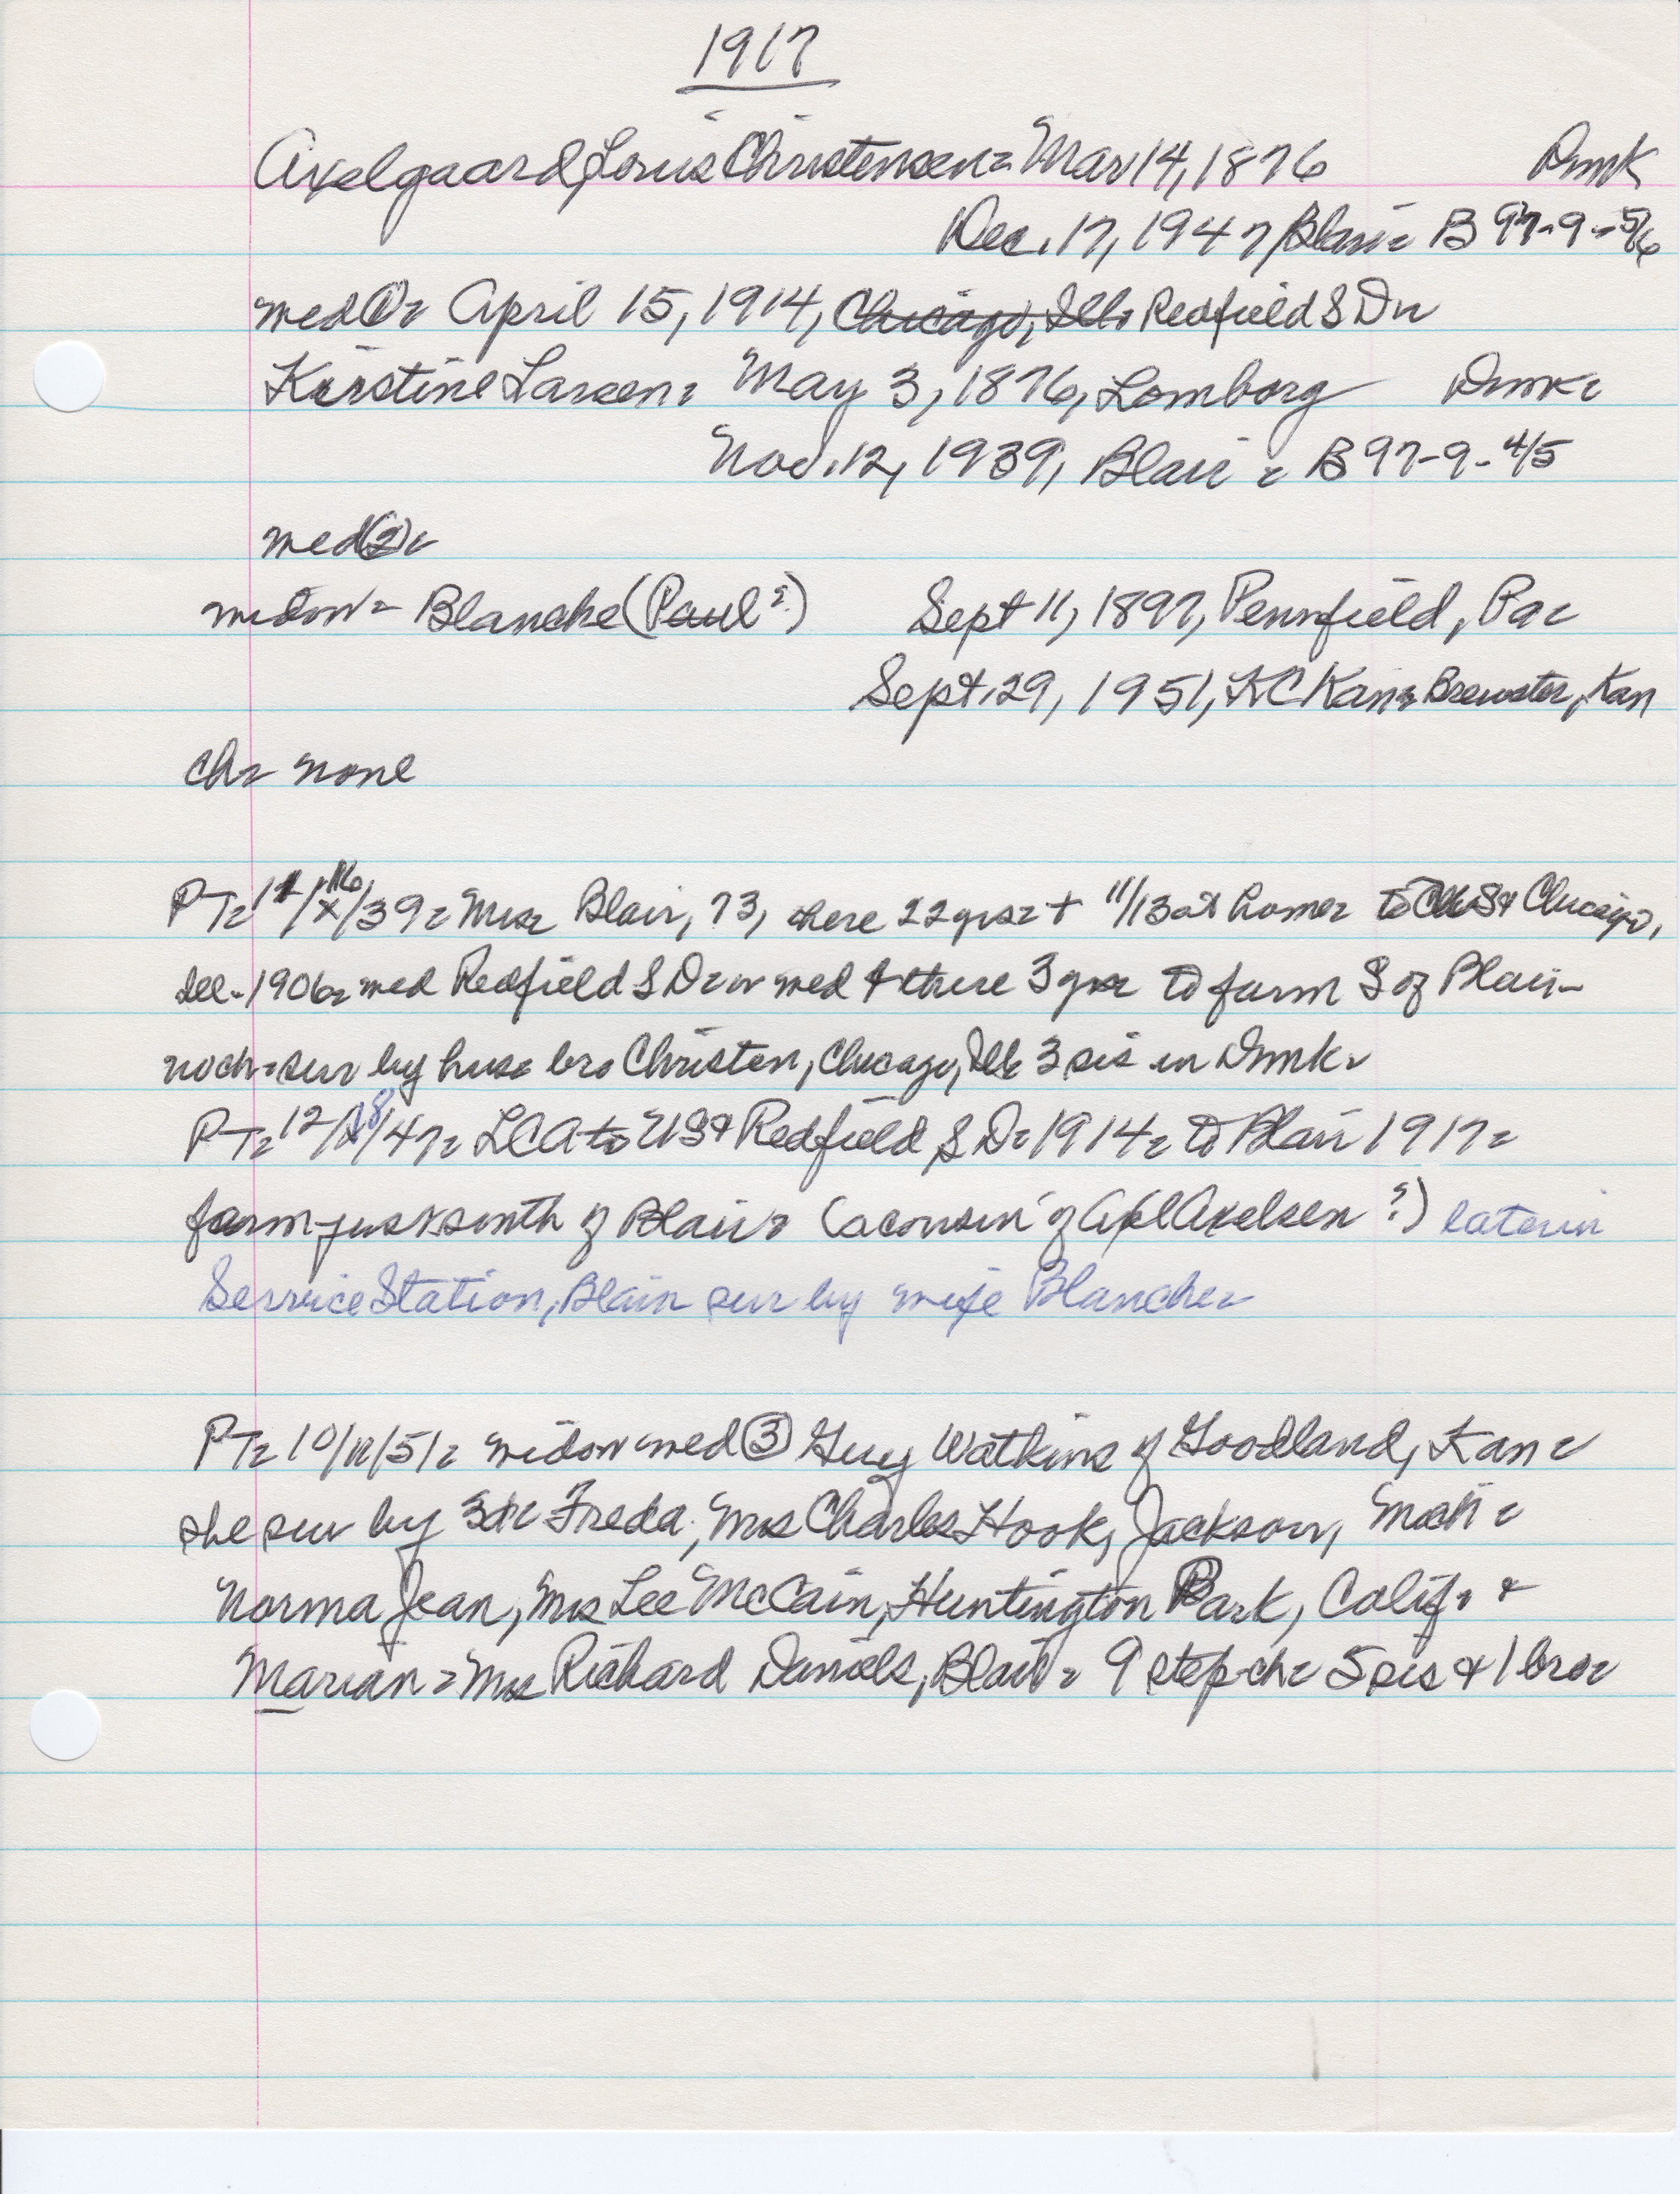 1917
Axelgaard, Louis Christensen = Mar 14, 1876 Dmk
Dec. 17, 1947 Blair = B 97-9-5/6
med ① = April 15, 1914, Chicago, Ill. Redfield S D =
Kirstine Larsen = May 3, 1876, Lomborg Dmk =
Nov. 12, 1939, Blair = B 97-9-4/5
med ② =
widow = Blanche (Paul?) Sept 11, 1897, Pennfield, Pa =
Sept. 29, 1951, KC Kan = Brewster, Kan
ch = none
PT = 11/16/39 = Mrs Blair, 73, here 22 yrs = + 11/13 at home = to US & Chicago,
Ill. 1906 = med Redfield S D = w med & there 3 yrs = to farm S of Blair -
no ch = sur by hus = bro Christen, Chicago, Ill = 3 sis in Dmk =
PT = 12/18/47 = LCA to US & Redfield, S D = 1914 = to Blair 1917 =
farm just south of Blair = (a cousin of Axel Axelsen?) later in
Service Station, Blair sur by wife Blanche =
PT = 10/11/51 = widow med ③ Guy Watkins of Goodland, Kan =
she sur by 3d = Freda, Mrs Charles Hook, Jackson, Mich =
Norma Jean, Mrs Lee McCain, Huntington Park, Calif. +
Marian = Mrs Richard Daniels, Blair = 9 step-ch = 5 sis & 1 bro =